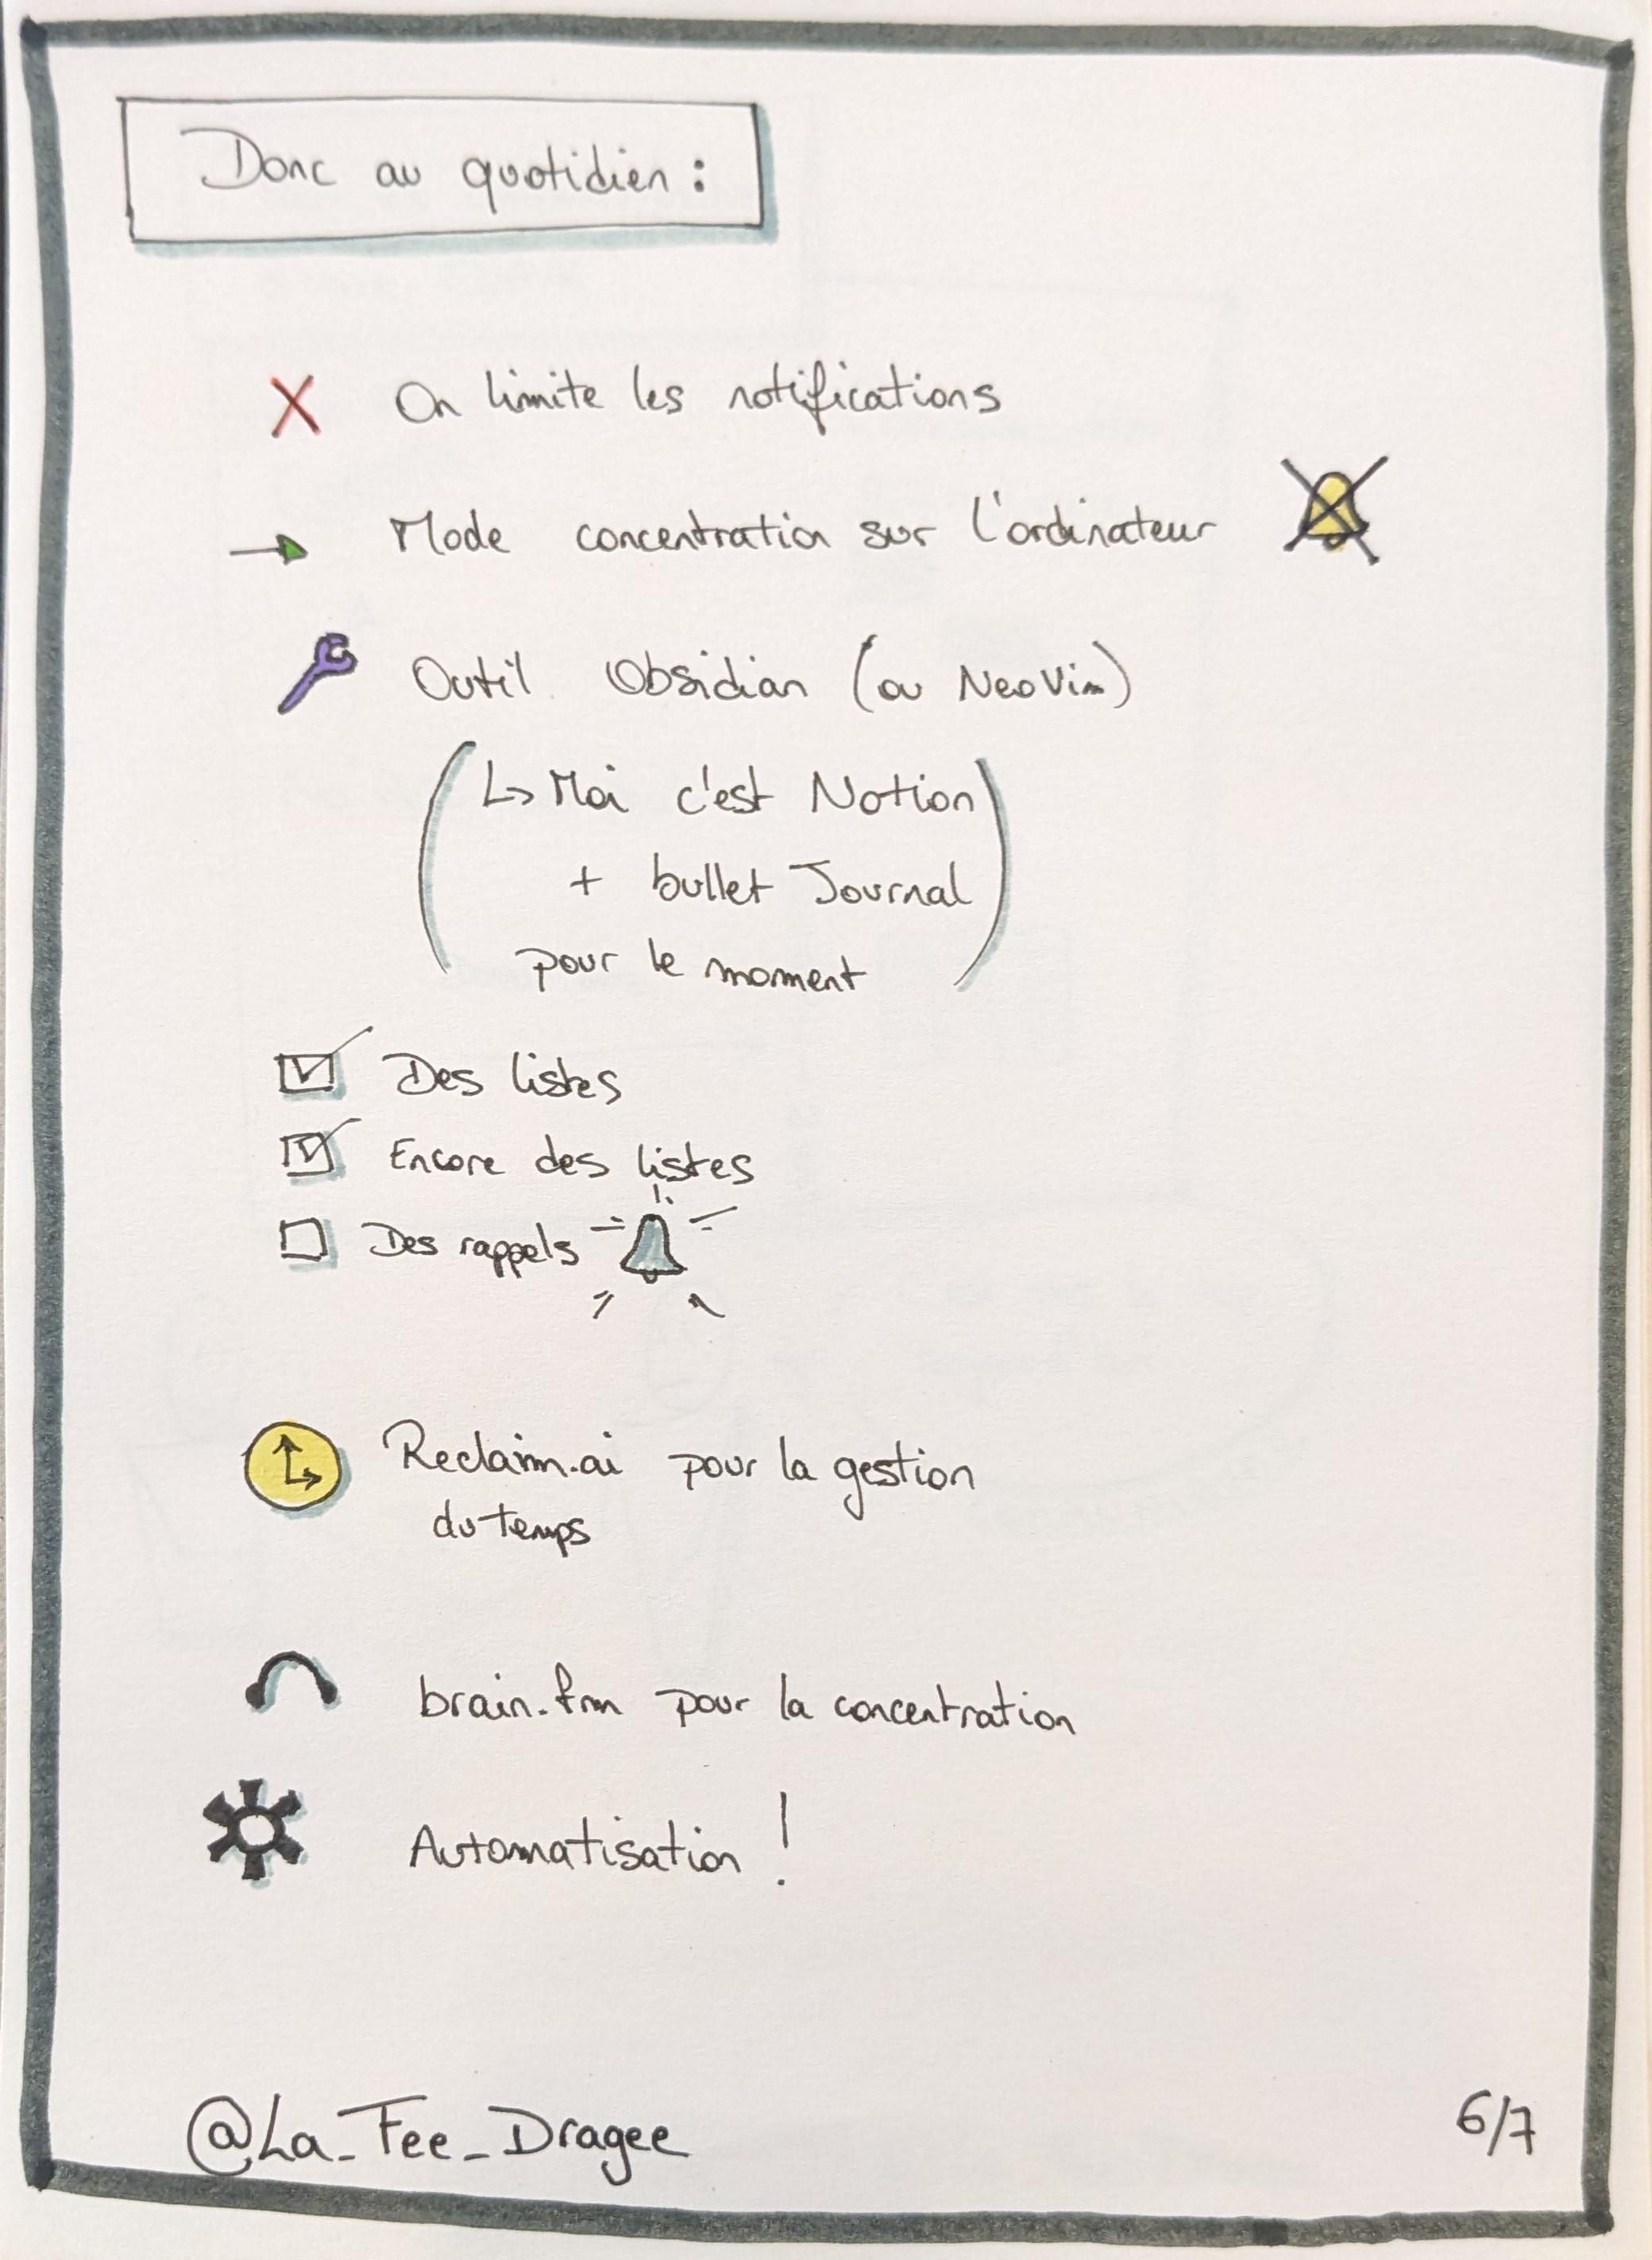 Donc au quotidien :
On limite les notifications
Mode concentration sur l'ordinateur
Outil Obsidian (ou NeoVim)
(↳ Moi c'est Notion
+ bullet Journal
pour le moment)
Des listes
Encore des listes
Des rappels
Reclaim.ai pour la gestion
du temps
brain.fm pour la concentration
Automatisation !
@La_Fee_Dragee
6/7